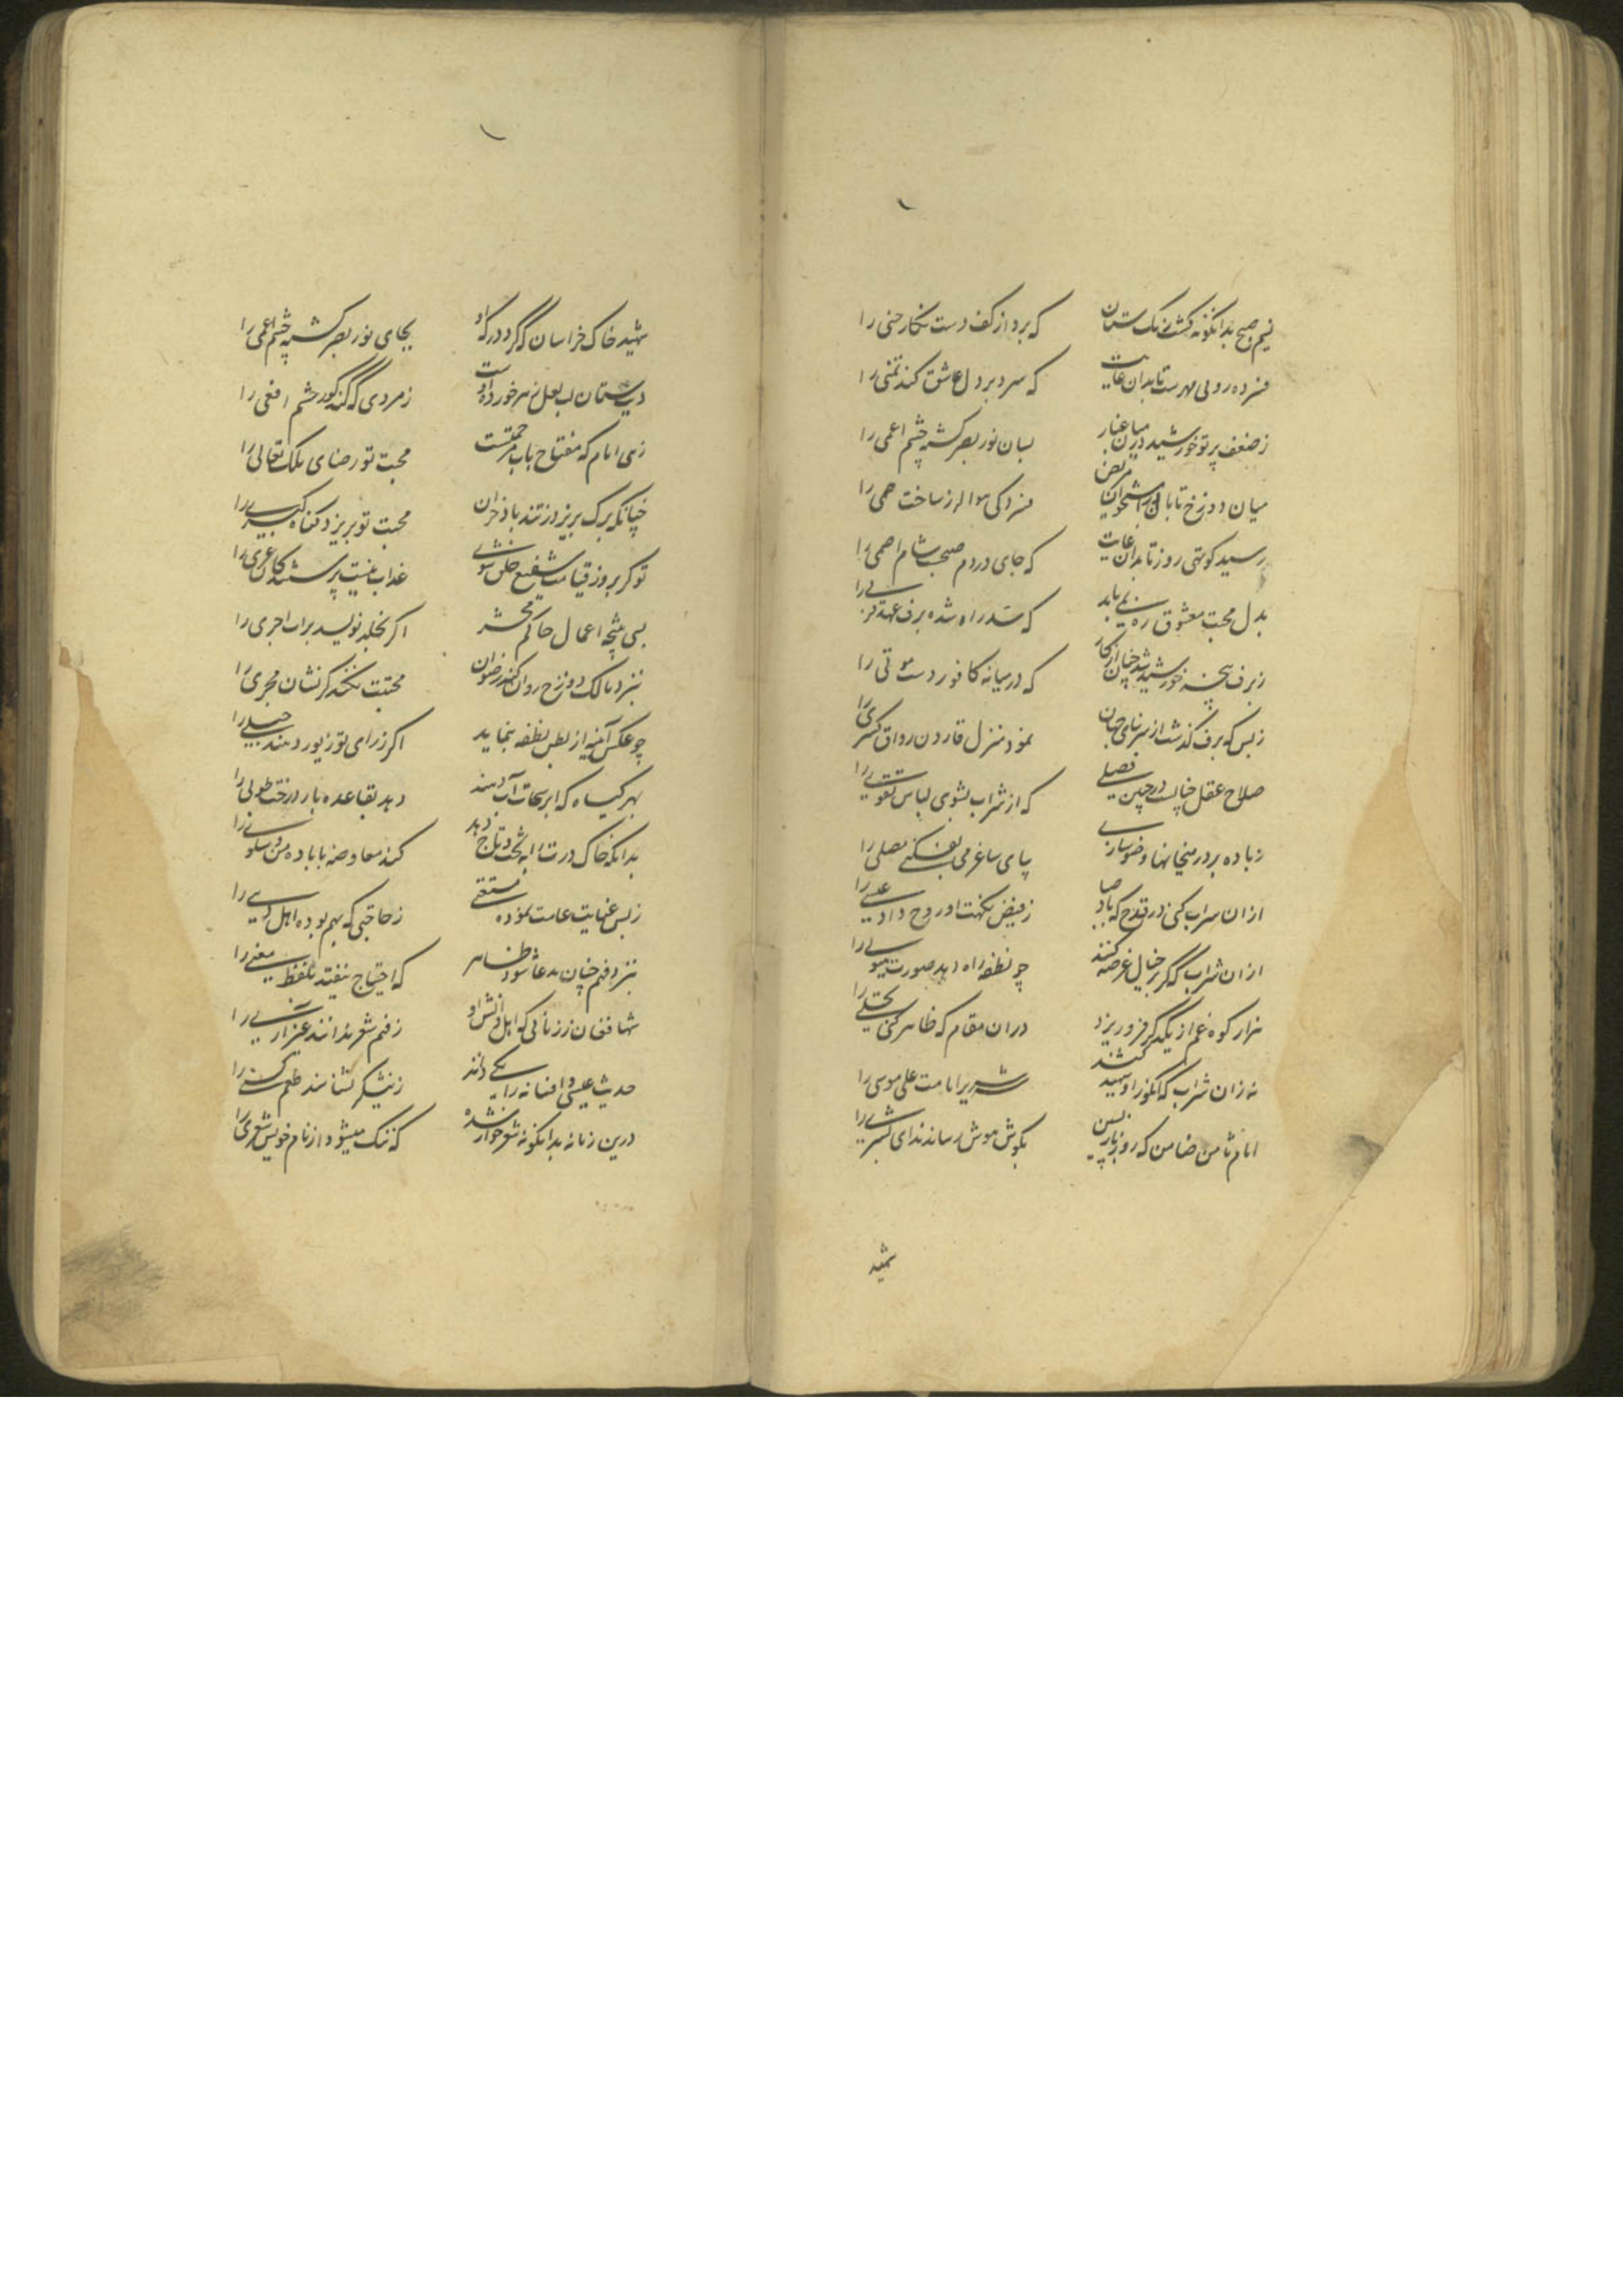 نسیم صبح بدانگونه گشت رنگ ستان که برد از کف دست نگار حنی را
فسرده رویی مهرست تابدان غایت که سرد بر دل عاشق کند تمنی را
ز ضعف پرتو خورشید درمیان غبار بسان نور بصر گشته چشم اعمی را
میان دوزخ تابان در استخوان مریض فسردگی هوا لرز ساخت حمی را
رسید کوتهی روز تابدان غایت که جای در دم صبحست شام اضحی را
بدل محبت معشوق ره نمی یابد که سد راه شده برف عهد
ز برف پنجه خورشید شد چنان از کار که در میانه کافور دست موتی را
ز بس که برف گذشت از سر بنای جهان نمود منزل قارون رواق کسری را
صلاح عقل چنانست در چنین فصلی که از شراب بشوی لباس تقوی را
ز باده بر در میخانها وضو سازی بپای ساغر می بفکنی مصلی را
از آن شراب کنی در قدح که باد صبا ز فیض نکهت او روح داد عیسی را
از آن شراب که گر بر خیال عرضه کنند چو نطفه راه دهد صورت هیولی را
هزار کوه غم از یکدگر فرو ریزد در آن مقام که ظاهر کنی تجلی را
نه زان شراب که انگور او شهید کند شریر امامت علی موسی را
امام ثامن ضامن که روز بازپسین بگوش هوش رساند ندای بشری را
شهید
شهید خاک خراسان که گرد درگه او بجای نور بصر گشته چشم اعمی را
دبستان لب لعل زهر خورده اوست زمردی که کند کور چشم افعی را
زهی امام که مفتاح باب مرحمتست محبت تو رضای ملک تعالی را
چنانکه برگ بریزد ز تند باد خزان محبت تو بریزد گناه کبری را
تو گر بروز قیامت شفیع خلق شوی عذاب نیست پرستندگان عزی را
پی نتیجه اعمال حاکم محشر اگر بخلد نویسد برات اجری را
بنزد مالک دوزخ روان کند رضوان محبتت نکند گر نشان مجری را
چو عکس آینه از بطن نطفه بنماید اگر ز رای تو زیور دهند حبلی را
بهر گیاه که ابر سخات آب دهد دهد بقاعده بار درخت طوبی را
بدانکه خاک درت را به تخت و تاج دهد کند معاوضه با باده من و سلوی را
ز بس عنایت عامت نموده مستغنی ز حاجتی که بهم بوده اهل دنیی را
بنزد فهم چنان مدعا شود ظاهر که احتیاج نیفتد بلفظ معنی را
شها فغان ز زمانی که اهل دانش او ز فهم شعر ندانند غیر از را
حدیث عیسی و افسانه را یکی دانند ز نیشکر نشناسند طعم کسنی را
درین زمانه بدانگونه شعر خوار شده که ننگ میشود از نام خویش شعری را